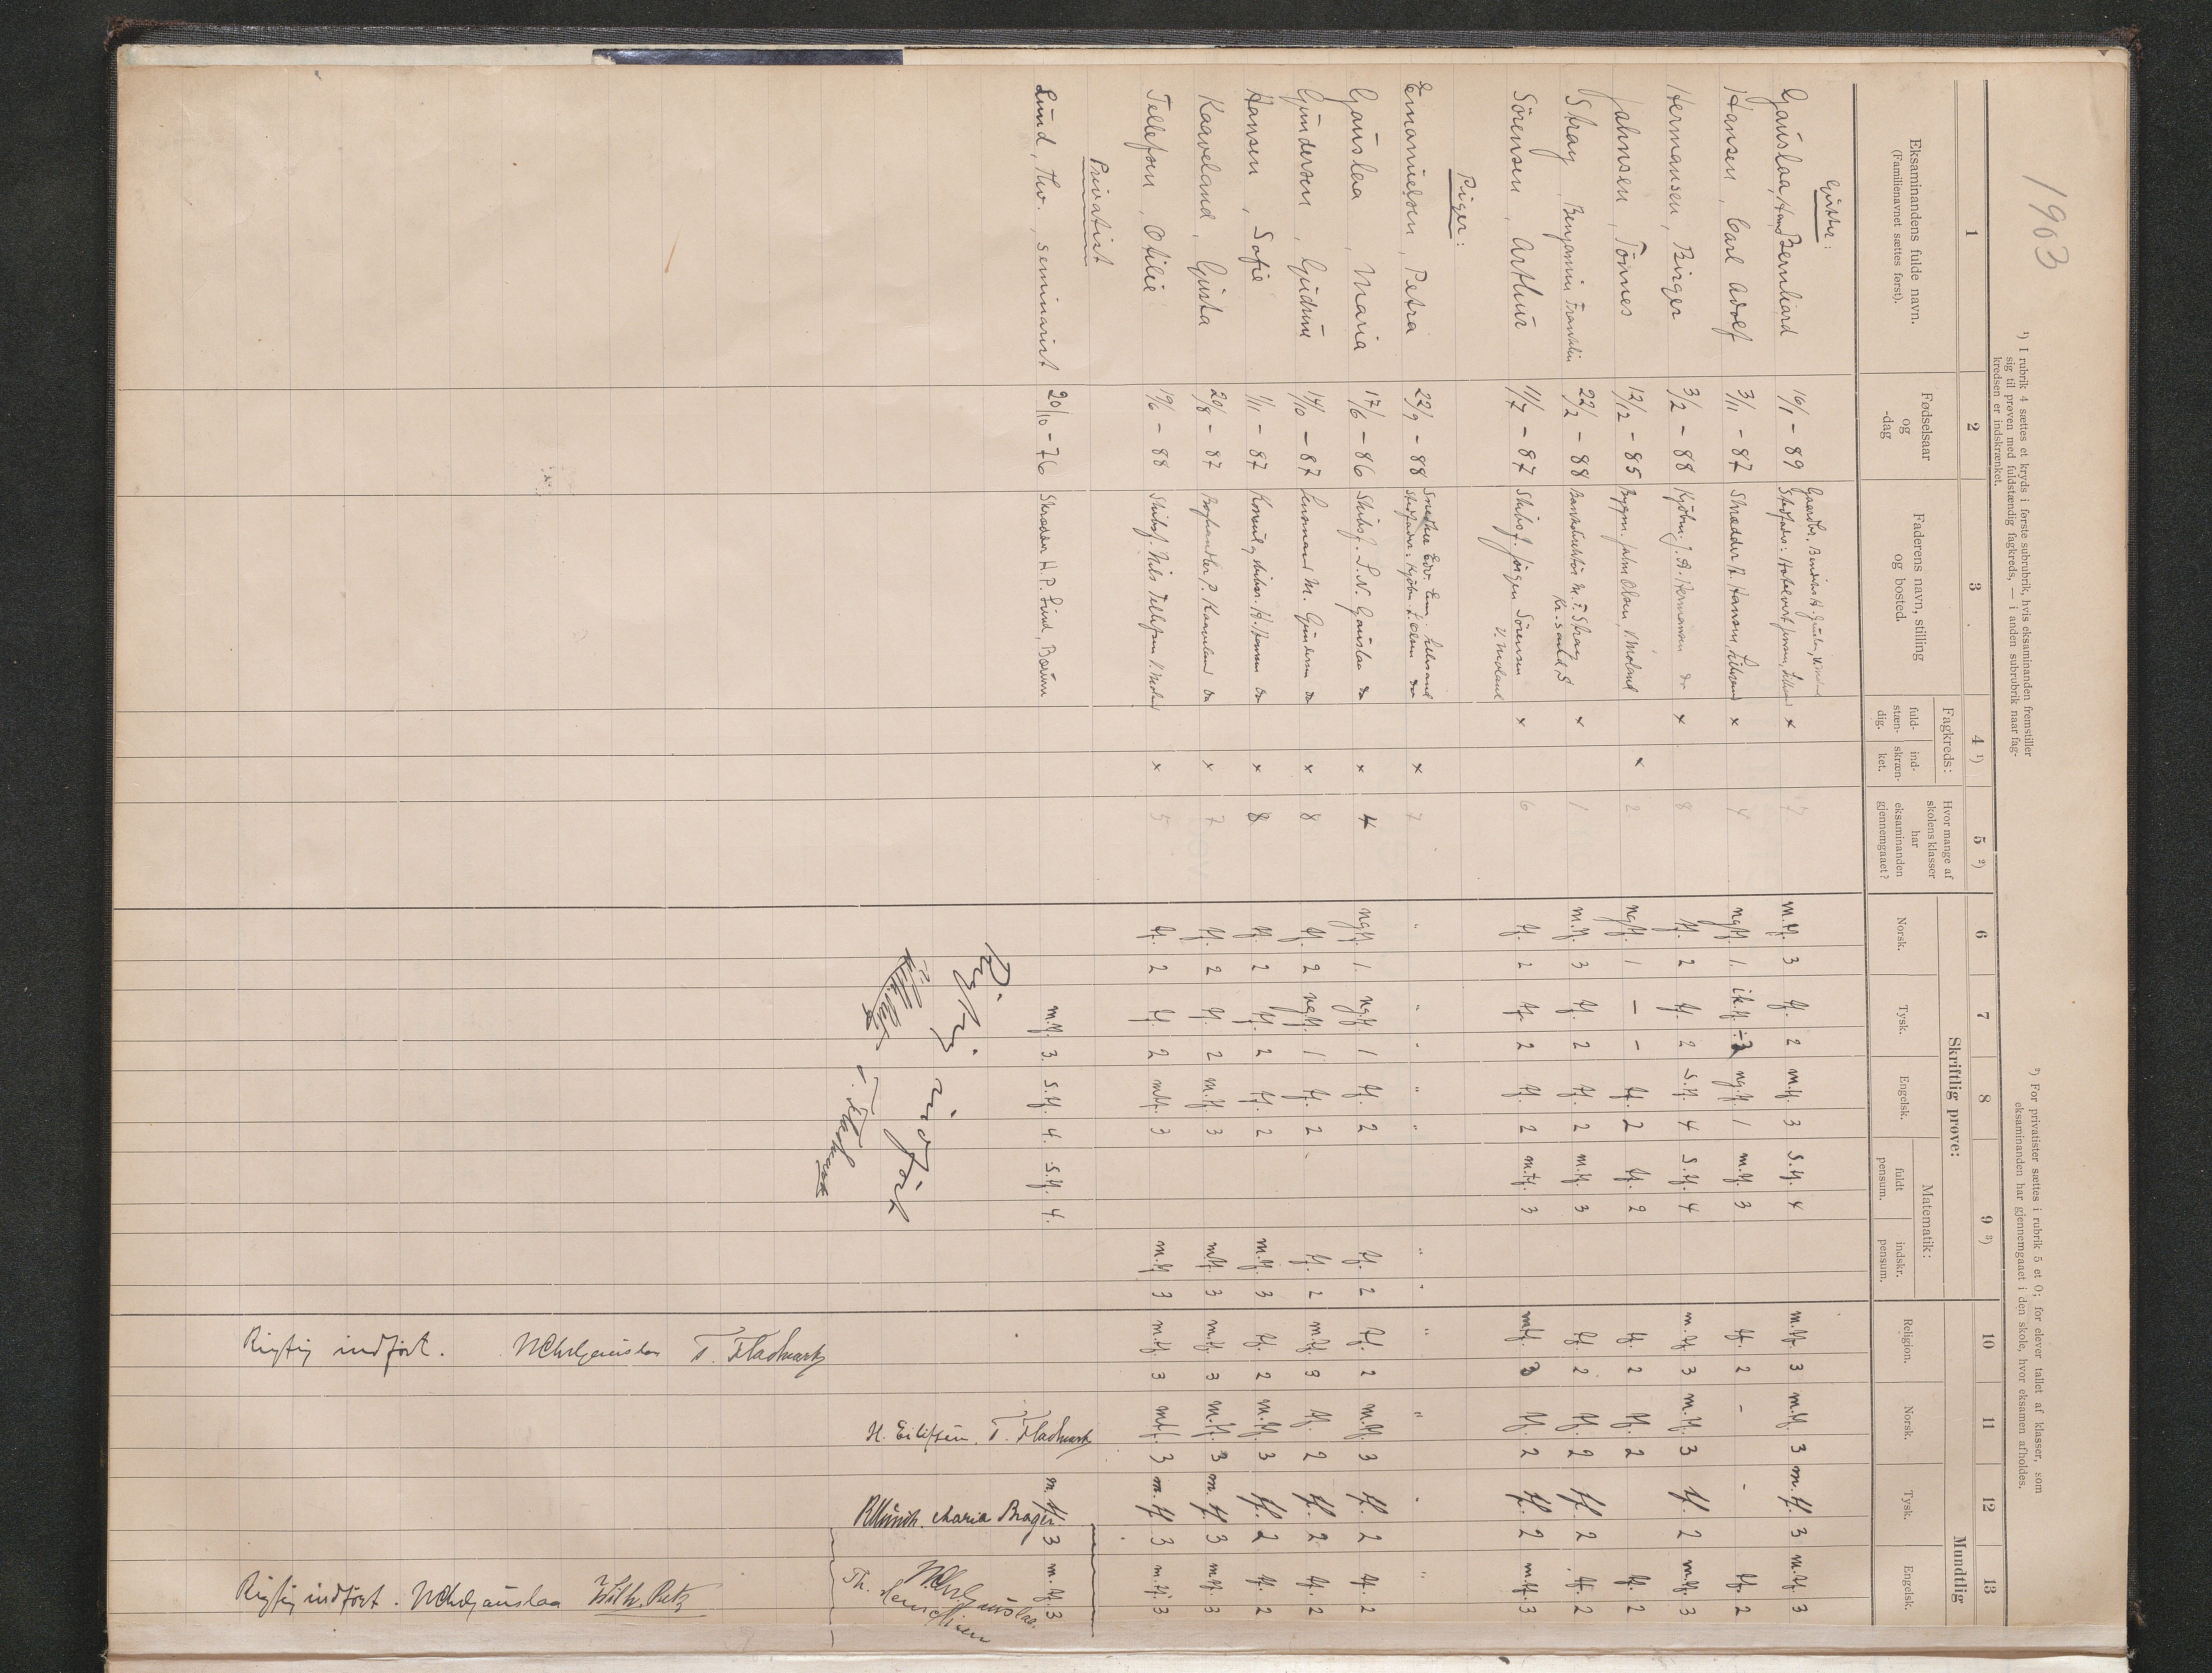 1903
¹) I rubrik 4 sættes et kryds i første subrubrik, hvis eksaminanden fremstiller
sig til prøven med fuldstændig fagkreds, — i anden subrubrik naar fag-
kredsen er indskrænket.
²) For privatister sættes i rubrik 5 et 0; for elever tallet af klasser, som
eksaminanden har gjennemgaaet i den skole, hvor eksamen afholdes.
1 2 3 4 ¹) 5 ²) 6 7 8 9 ³) 10 11 12 13
Eksaminandens fulde navn.
(Familienavnet sættes først).
Fødselsaar
og
-dag
Faderens navn, stilling
og bosted.
Fagkreds:
fuld-
stæn-
dig.
ind-
skræn-
ket.
Hvor mange af
skolens klasser
har
eksaminanden
gjennemgaaet?
Skriftlig prøve:
Norsk.
Tysk.
Engelsk.
Matematik:
fuldt
pensum.
indskr.
pensum.
Mundtlig
Religion.
Norsk.
Tysk.
Engelsk.
Gutter:
Gauslaa, Bernhard 16/1 - 89 x 7 m.tf. 3 tf. 2 m.tf. 3 s.tf. 4 m.tf. 3 m.tf. 3 m.tf. 3 m.tf. 3
Hansen, Carl Adolf 3/11 - 87 Skrædder A. Hansen, x 4 ng.tf. 1. ik.tf. ng.tf. 1 m.tf. 3 tf. 2 - - tf. 2
Hermansen, Birger 3/2 - 88 Kjøbm. J. A. Hermansen do x 8 tf. 2 tf. 2 s.tf. 4 s.tf. 4 m.tf. 3 m.tf. 3 tf. 2 m.tf. 3
Jahnsen, Tönnes 12/12 - 85 Bygm. Jahn Olsen, V. Moland x 2 ng.tf. 1 - - tf. 2 tf. 2 tf. 2 tf. 2 tf. 2
Stray, Benjamin Franklin 22/2 - 88 M. F. Stray x 1 m.tf. 3 tf. 2 tf. 2 m.tf. 3 tf. 2 tf. 2 tf. 2 tf. 2
Kr.sand S
Sörensen, Arthur 11/7 - 87 Skibsf. Jörgen Sörensen x 6 tf. 2 tf. 2 tf. 2 m.tf. 3 m.tf. 3 tf. 2 tf. 2 m.tf. 3
V. Moland
Piger:
Emanuelsen, Petra 22/9 - 88 x 7 " " " " " " " "
Gauslaa, Maria 17/6 - 86 Skibsf. L. N. Gauslaa do x 4 ng.tf. 1. ng.tf. 1 tf. 2 tf. 2 tf. 2 m.tf. 3 tf. 2 tf. 2
Gundersen, Gudrun 14/10 - 87 M. Gundersen do x 8 tf. 2 ng.tf. 1 tf. 2 tf. 2 m.tf. 3 tf. 2 tf. 2 tf. 2
Hansen, Sofie 1/11 - 87 do x 8 tf. 2 tf. 2 tf. 2 m.tf. 3 tf. 2 m.tf. 3 tf. 2 tf. 2
Kaaveland, Gusta 20/8 - 87 P. Kaaveland do x 7 tf. 2 tf. 2 m.tf. 3 m.tf. 3 m.tf. 3 m.tf. 3 m.tf. 3 m.tf. 3
Tellefsen, Otilie 19/6 - 88 Skibsf. Nils Tellefsen V. Moland x 5 tf. 2 tf. 2 m.tf. 3 m.tf. 3 m.tf. 3 m.tf. 3 m.tf. 3 m.tf. 3
Privatist
Lund, Thv., seminarist 20/10 - 76 Skrædder H. P. Lund, Bærum m.tf. 3. s.tf. 4. s.tf. 4. m.tf. 3 m.tf. 3
Rigtig indført
T. Fladmark
H. Eilifsen. T. Fladmark
Maria Brager.
N Chr Gauslaa.
Rigtig indført. N Chr Gauslaa T. Fladmark
Rigtig indført. N Chr Gauslaa